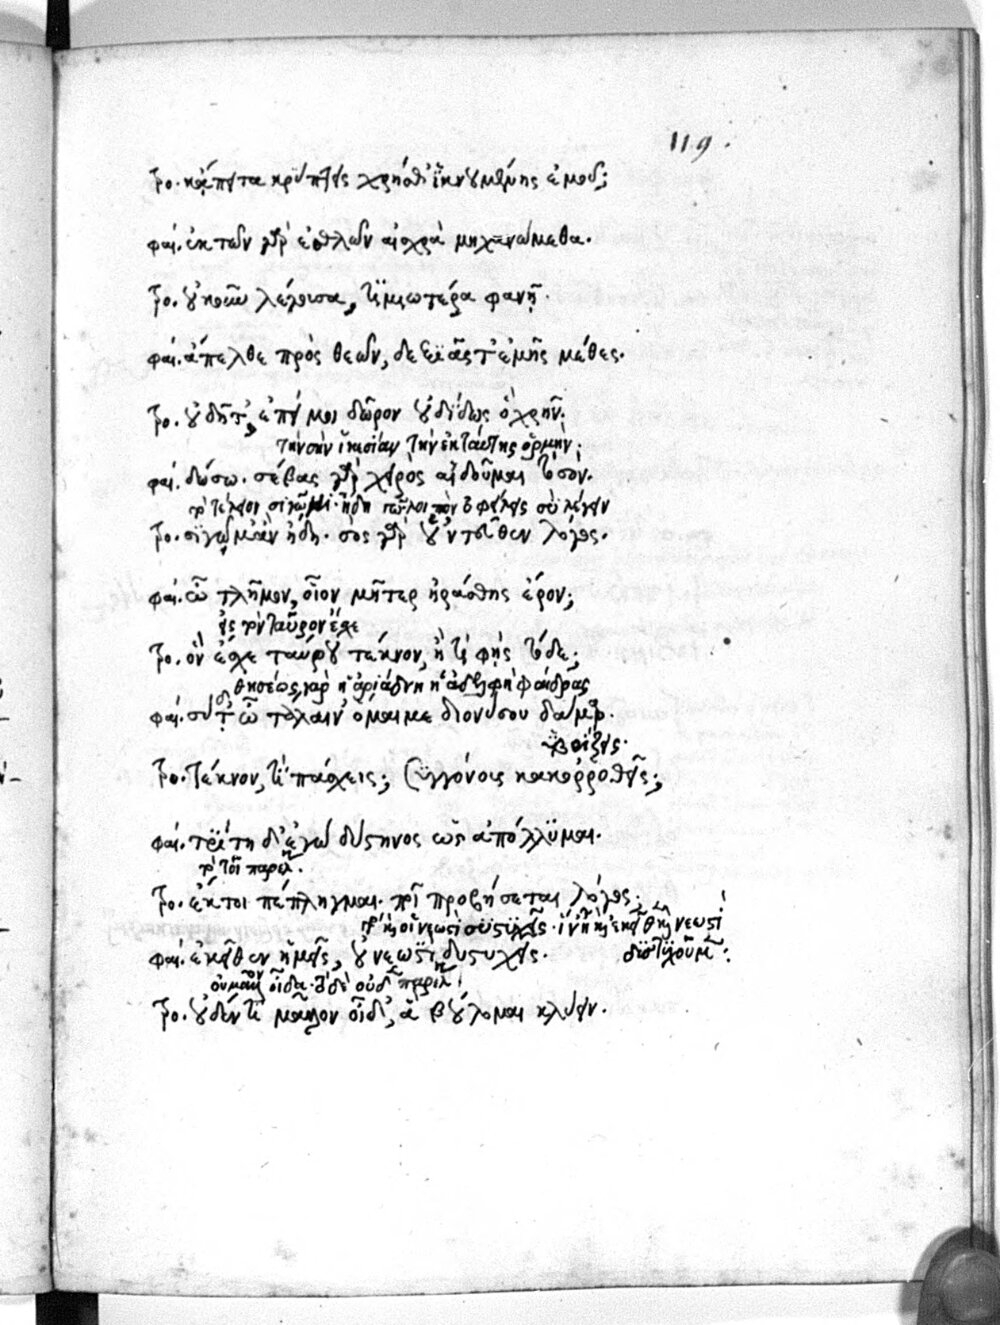 119.
τρο. κἄπειτα κρύπτεις χρήσθ' ἱκνουμένης ἐμοῦ;
φαί. ἐκ τῶν γὰρ ἐσθλῶν αἰσχρὰ μηχανώμεθα.
τρο. οὐκοῦν λέγουσα, τιμιωτέρα φανῇ.
φαί. ἄπελθε πρὸς θεῶν, δεξιᾶς τ' ἐμῆς μέθες.
τρο. οὐ δῆτ', ἐπεί μοι δῶρον οὐ δίδως ὃ χρῆν.
τὴν σὴν ἱκεσίαν τὴν ἐκ ταύτης ὁρμὴν.
φαί. δώσω. σέβας γὰρ χειρὸς αἰδοῦμαι τὸ σόν.
τρο. σιγῷμ' ἂν ἤδη. σὸς γὰρ οὑντεῦθεν λόγος.
φαί. ὦ τλῆμον, οἷον μῆτερ ἠράσθης ἔρον;
εἰς τὸν ταῦρον ἔσχε
τρο. ὃν ἔσχε ταύρου τέκνον, ἢ τί φῂς τόδε;
θησέως γὰρ ἡ ἀριάδνη ἡ ἀδελφὴ φαίδρας
φαί. σύ τ' ὦ τάλαιν' ὅμαιμε διονύσου δάμαρ.
ὑβρίζεις.
τρο. τέκνον, τί πάσχεις; συγγόνους κακορροθεῖς;
φαί. τρίτη δ' ἐγὼ δύστηνος ὡς ἀπόλλυμαι.
τρο. ἔκ τοι πέπληγμαι. ποῖ προβήσεται λόγος;
φαί. ἐκεῖθεν ἡμεῖς, οὐ νεωστὶ δυστυχεῖς.
τρο. οὐδέν τι μᾶλλον οἶδ', ἃ βούλομαι κλύειν.